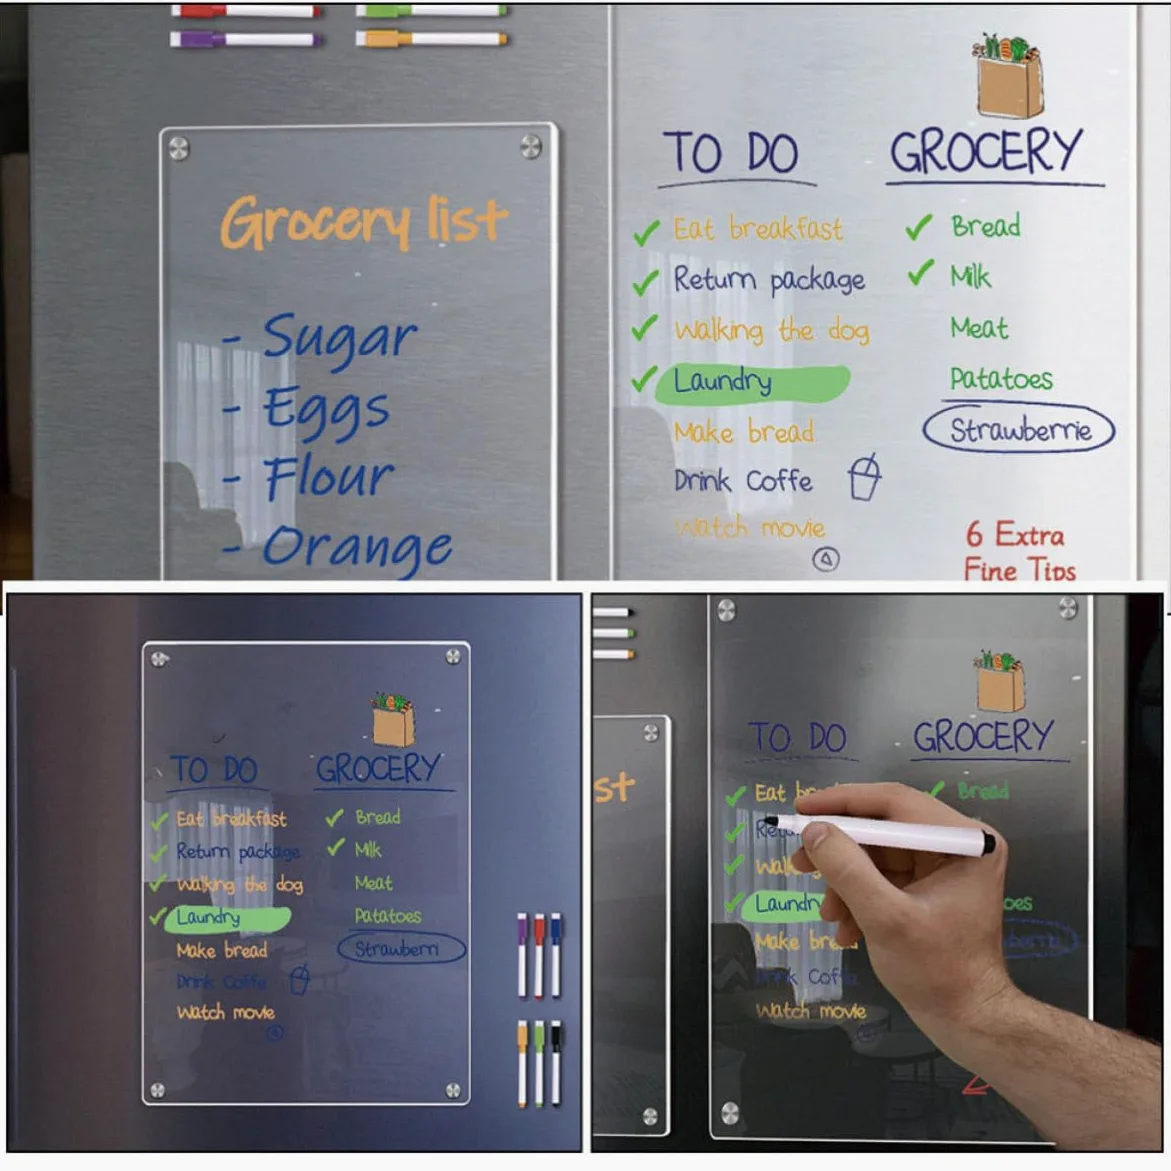 Grocery list
- Sugar
- Eggs
- Flour
- Orange
TO DO
Eat breakfast
Return package
Walking the dog
Laundry
Make bread
Drink Coffe
Watch movie
GROCERY
Bread
Milk
Meat
Patatoes
Strawberrie
6 Extra
Fine Tips
TO DO
Eat breakfast
Return package
Walking the dog
Laundry
Make bread
Drink Coffe
Watch movie
GROCERY
Bread
Milk
Meat
Patatoes
Strawberri
st
TO DO
Eat
Laundr
Make
Watch movie
GROCERY
Bread
oes